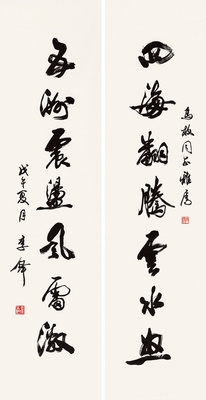 四海翻騰雲水怒
同志雅属
五洲震盪風雷激
戊午夏月 李鐸